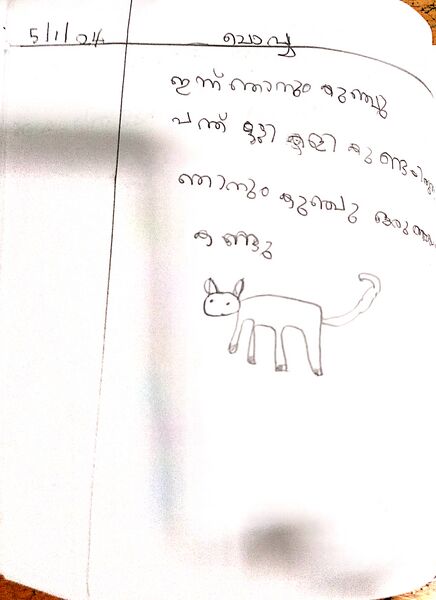 5/1/24 ചൊവ്വ
ഇന്ന് ഞാനും കുഞ്ചു
പന്ത് കളി
ഞാനും കുഞ്ചു ഒരു
കണ്ടു